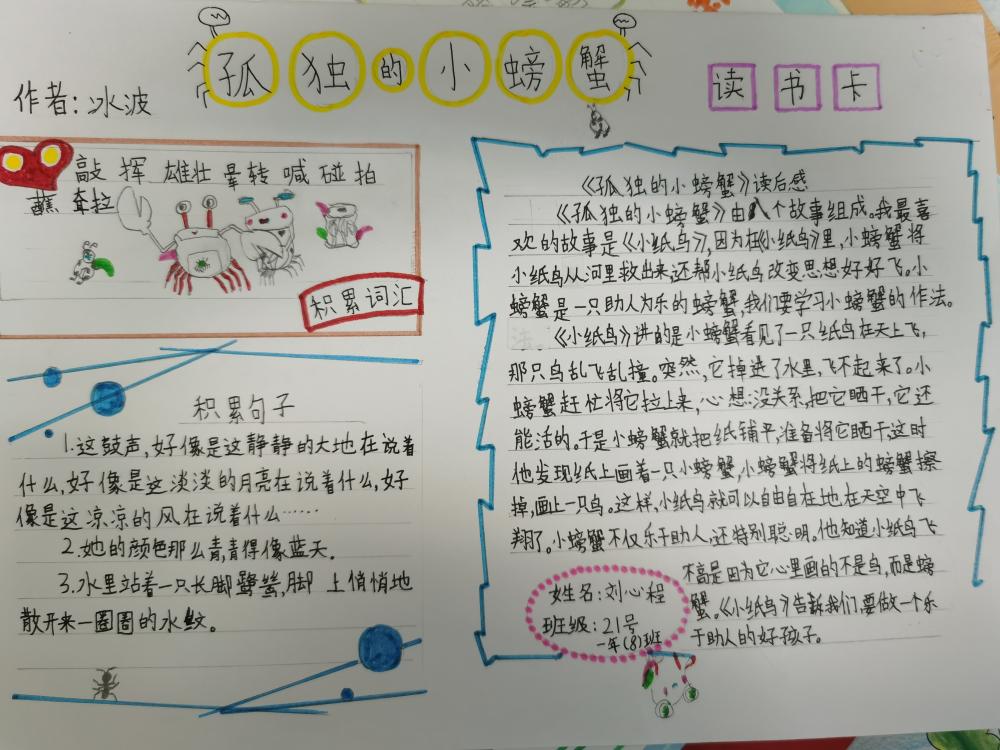 孤独的小螃蟹
读书卡
作者:冰波
敲 挥 雄壮 晕转 喊 碰 拍
蘸 牵拉
积累词汇
积累句子
1.这鼓声,好像是这静静的大地在说着
什么,好像是这淡淡的月亮在说着什么,好
像是这凉凉的风在说着什么……
2.她的颜色那么青,青得像蓝天.
3.水里站着一只长脚鹭鸶,脚 上悄悄地
散开来一圈圈的水纹。
《孤独的小螃蟹》读后感
《孤独的小螃蟹》由八个故事组成。我最喜
欢的故事是《小纸鸟》,因为在《小纸鸟》里,小螃蟹将
小纸鸟从河里救出来,还帮小纸鸟改变思想好好飞。小
螃蟹是一只助人为乐的螃蟹,我们要学习小螃蟹的作法。
《小纸鸟》讲的是小螃蟹看见了一只纸鸟在天上飞,
那只鸟乱飞乱撞。突然,它掉进了水里,飞不起来了。小
螃蟹赶忙将它拉上来,心想:没关系,把它晒干,它还
能活的。于是小螃蟹就把纸铺平,准备将它晒干,这时
他发现纸上画着一只小螃蟹,小螃蟹将纸上的螃蟹擦
掉,画上一只鸟。这样,小纸鸟就可以自由自在地在天空中飞
翔了。小螃蟹不仅乐于助人,还特别聪明。他知道小纸鸟飞
不高是因为它心里画的不是鸟,而是螃
蟹。《小纸鸟》告诉我们要做一个乐
于助人的好孩子。
姓名:刘心程
班级:21号
一年(8)班